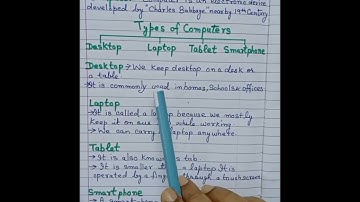 Computer is an electronic device
developed by "Charles Babbage" nearby 19th Century.
Types of Computers
Desktop Laptop Tablet Smartphone
Desktop → We keep desktop on a desk or
a table.
→ It is commonly used in homes, Schools & offices.
Laptop
→ It is called a laptop because we mostly
keep it on our while working
→ We can carry laptop anywhere.
Tablet
→ It is also known as tab.
→ It is smaller than a laptop It is
operated by a finger through a touchscreen
Smartphone